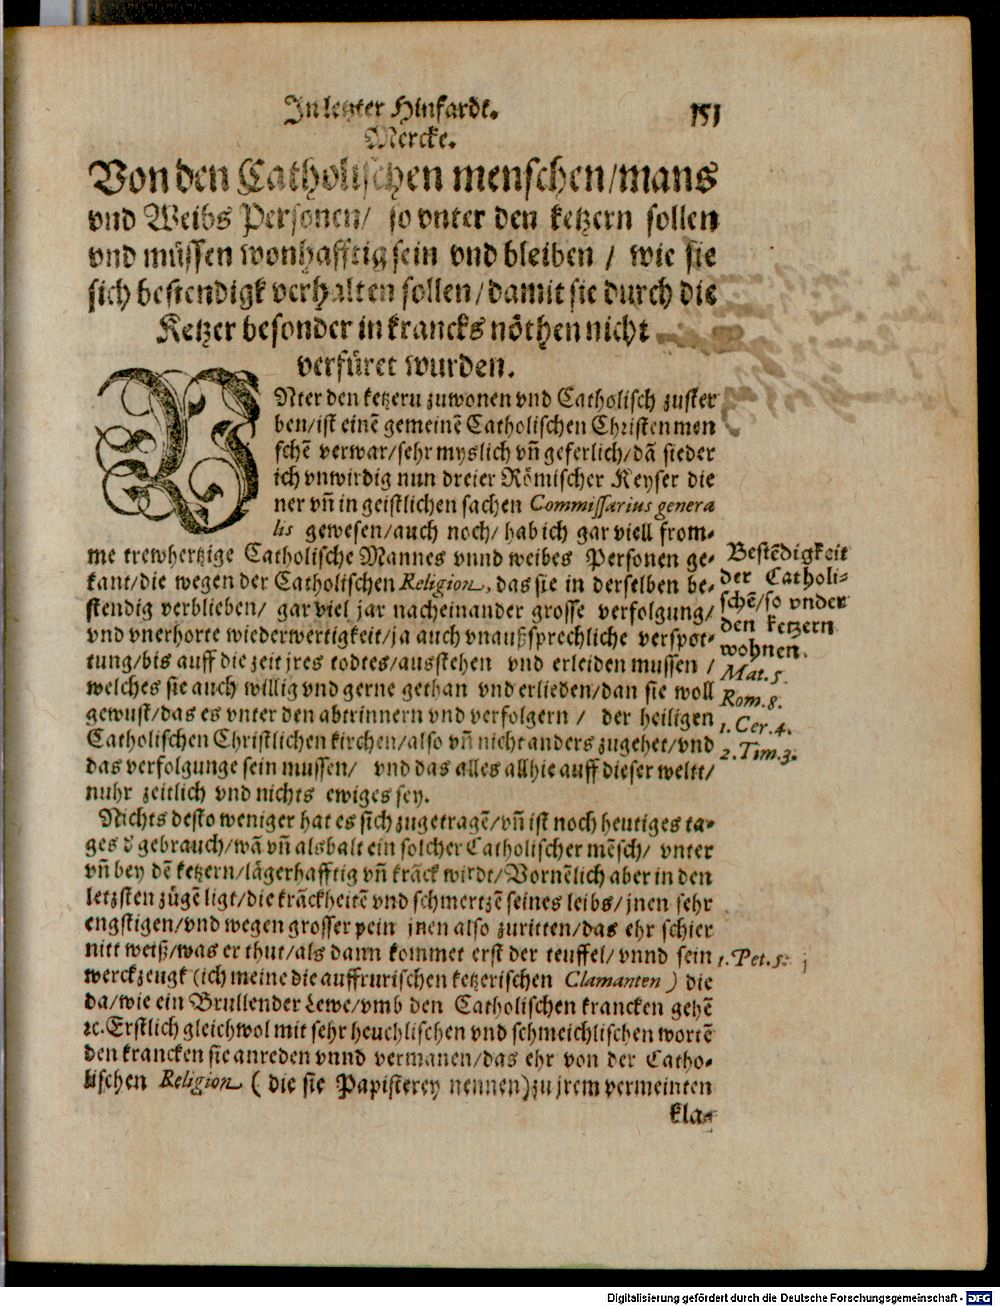 In letzter Hinfardt. 151
Mercke.
Von den Catholischen menschen/mans
vnd Weibs Personen/ so vnter den ketzern sollen
vnd müssen wonhafftig sein vnd bleiben / wie sie
sich bestendigk verhalten sollen/damit sie durch die
Ketzer besonder in krancks nöthen nicht
verfüret wurden.
VNter den ketzern zuwonen vnd Catholisch zuster
ben/ist einē gemeinē Catholischen Christenmen
schē verwar/sehr myslich vn̄ geferlich/dā sieder
ich vnwirdig nun dreier Römischer Keyser die
ner vn̄ in geistlichen sachen Commissarius genera
lis gewesen/auch noch/ hab ich gar viell from-
me trewhertzige Catholische Mannes vnnd weibes Personen ge-
kant/die wegen der Catholischen Religion, das sie in derselben be-
stendig verblieben/ gar viel jar nacheinander grosse verfolgung/
vnd vnerhorte wiederwertigkeit/ja auch vnaußsprechliche verspot-
tung/bis auff die zeit jres todtes/ausstehen vnd erleiden mussen /
welches sie auch willig vnd gerne gethan vnd erlieden/dan sie woll
gewust/das es vnter den abtrinnern vnd verfolgern / der heiligen
Catholischen Christlichen kirchen/also vn̄ nicht anders zugehet/vnd
das verfolgunge sein mussen/ vnd das alles allhie auff dieser weltt/
nuhr zeitlich vnd nichts ewiges sey.
Bestēdigkeit
der Catholi-
schē/so vnder
den ketzern
wohnen.
Mat. 5.
Rom. 8.
1. Cer. 4.
2. Tim. 3.
Nichts desto weniger hat es sich zugetragē/vn̄ ist noch heutiges ta-
ges d̓ gebrauch/wā vn̄ alsbalt ein solcher Catholischer mēsch/ vnter
vn̄ bey dē ketzern/lägerhafftig vn̄ krāck wirdt/Vornēlich aber in den
letzsten zügē ligt/die krāckheitē vnd schmertzē seines leibs/jnen sehr
engstigen/vnd wegen grosser pein jnen also zuritten/das ehr schier
nitt weiß/was er thut/als dann kommet erst der teuffel/vnnd sein
werckzeugk (ich meine die auffrurischen ketzerischen Clamanten) die
da/wie ein Brullender Lewe/vmb den Catholischen krancken gehē
ꝛc. Erstlich gleichwol mit sehr heuchlischen vnd schmeichlischen wortē
den krancken sie anreden vnnd vermanen/das ehr von der Catho-
lischen Religion (die sie Papisterey nennen) zu jrem vermeinten
1. Pet. 5.
kla-
Digitalisierung gefördert durch die Deutsche Forschungsgemeinschaft - DFG